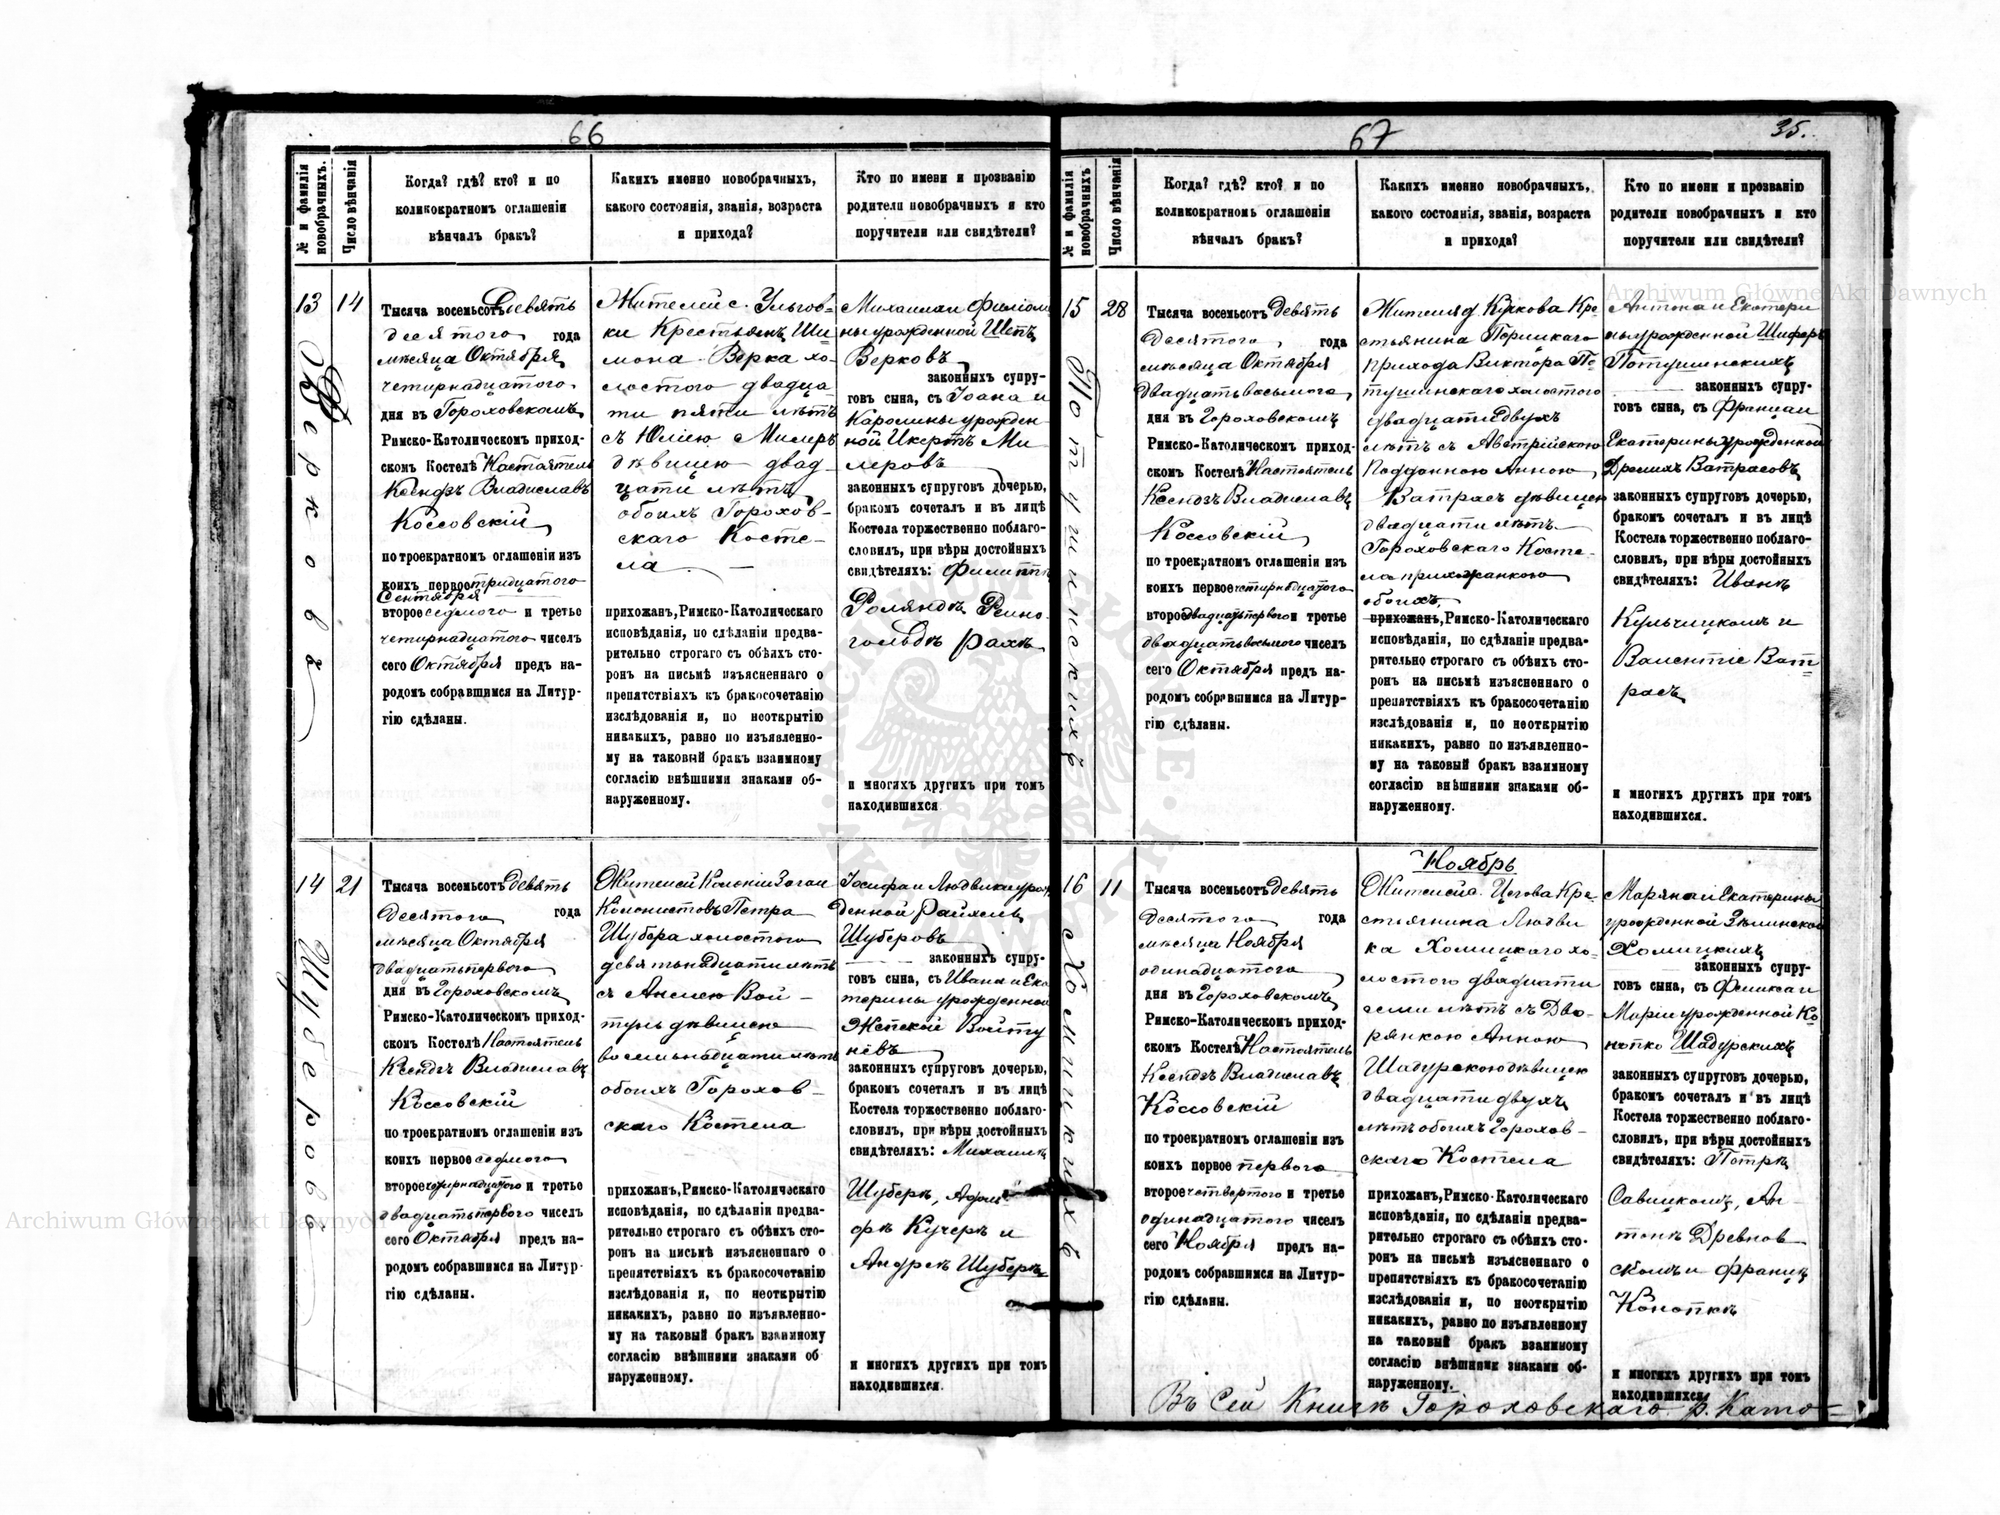 66
№ и фамилія новобрачныхъ.
Число вѣнчанія
Когда? гдѣ? кто? и по
коликократномъ оглашеніи
вѣнчалъ бракъ?
Какихъ именно новобрачныхъ,
какого состоянія, званія, возраста
и прихода?
Кто по имени и прозванію
родители новобрачныхъ и кто
поручители или свидѣтели?
13
Верковъ
14
Тысяча восемьсотъ Девять
десятого года
мѣсяца Октября
четырнадцатого
дня въ Гороховскомъ
Римско-Католическомъ приход-
скомъ Костелѣ Настоятель
Ксендзъ Владиславъ
Коссовскій
по троекратномъ оглашеніи изъ
коихъ первое тридцатого
Сентября
второе седмого и третье
четырнадцатого чиселъ
сего Октября предъ на-
родомъ собравшимся на Литур-
гію сдѣланы.
Жителей с.
ки Крестьянъ Ши-
мона Верка хо-
лостого двадца
ти пяти лѣтъ
съ Юліею Милеръ
дѣвицею двад-
цати лѣтъ
обоихъ Горохов-
скаго Косте-
ла.
прихожан, Римско-Католическаго
исповѣданія, по сдѣланіи предва-
рительно строгаго съ обѣихъ сто-
ронъ на письмѣ изъясненнаго о
препятствіяхъ къ бракосочетанію
изслѣдованія и, по неоткрытію
никакихъ, равно по изъявленно-
му на таковый бракъ взаимному
согласію внѣшними знаками об-
наруженному.
Михаила и
ны урожденной
Верковъ
законныхъ супру-
говъ сына, съ Іоана и
Каролины урожден
ной Икертъ Ми
леровъ
законныхъ супруговъ дочерью,
бракомъ сочеталъ и въ лицѣ
Костела торжественно поблаго-
словилъ, при вѣры достойныхъ
свидѣтеляхъ: Филиппѣ
Роляндъ Рейно-
гольдѣ
и многихъ другихъ при томъ
находившихся
14
Шуберовъ
21
Тысяча восемьсотъ девять
десятого года
мѣсяца Октября
двадцать первого
дня въ Гороховскомъ
Римско-Католическомъ приход-
скомъ Костелѣ Настоятель
Ксендзъ Владиславъ
Коссовскій
по троекратномъ оглашеніи изъ
коихъ первое седмого
второе четырнадцатого и третье
двадцать первого чиселъ
сего Октября предъ на-
родомъ собравшимся на Литур-
гію сдѣланы.
Жителей Колоніи
Колонистовъ Петра
Шубера холостого
девятьнадцати лѣтъ
съ Анелею Вой-
тунь дѣвицею
восемьнадцати лѣтъ
обоихъ Горохов-
скаго Костела
прихожан, Римско-Католическаго
исповѣданія, по сдѣланіи предва-
рительно строгаго съ обѣихъ сто-
ронъ на письмѣ изъясненнаго о
препятствіяхъ къ бракосочетанію
изслѣдованія и, по неоткрытію
никакихъ, равно по изъявленно-
му на таковый бракъ взаимному
согласію внѣшними знаками об
наруженному.
Іосифа и Людвики урож
денной Райхель
Шуберовъ
законныхъ супру-
говъ сына, съ Ивана и Ека
терины урожденной
Жепской Войту
нёвъ
законныхъ супруговъ дочерью,
бракомъ сочеталъ и въ лицѣ
Костела торжественно поблаго-
словилъ, при вѣры достойныхъ
свидѣтеляхъ: Михаилѣ
Шуберѣ, Адоль
фѣ Кучерѣ и
Андреѣ Шуберѣ
и многихъ другихъ при томъ
находившихся.
67
35.
№ и фамилія новобрачныхъ
Число вѣнчанія
Когда? гдѣ? кто? и по
коликократномъ оглашеніи
вѣнчалъ бракъ?
Какихъ именно новобрачныхъ,
какого состоянія, званія, возраста
и прихода?
Кто по имени и прозванію
родители новобрачныхъ и кто
поручители или свидѣтели?
15
Потушинскихъ
28
Тысяча восемьсотъ Девять
десятого года
мѣсяца Октября
двадцать восьмого
дня въ Гороховскомъ
Римско-Католическомъ приход-
скомъ Костелѣ Настоятель
Ксендзъ Владиславъ
Коссовскій
по троекратномъ оглашеніи изъ
коихъ первое четырнадцатого
второе двадцать первого и третье
двадцать восьмого чиселъ
сего Октября предъ на-
родомъ собравшимся на Литур-
гію сдѣланы.
Жителя д. Куткова Кре
стьянина Порицкаго
прихода Виктора По
тушинскаго холостого
двадцати двухъ
лѣтъ съ Австрійскою
Подданною Анною
Ватрасъ дѣвицею
двадцати лѣтъ
Гороховскаго Косте-
ла прихожанкою
обоихъ,
прихожан, Римско-Католическаго
исповѣданія, по сдѣланіи предва-
рительно строгаго съ обѣихъ сто-
ронъ на письмѣ изъясненнаго о
препятствіяхъ къ бракосочетанію
изслѣдованія и, по неоткрытію
никакихъ, равно по изъявленно-
му на таковый бракъ взаимному
согласію внѣшними знаками об-
наруженному.
Антона и Екатери
ны урожденной Шиферъ
Потушинскихъ
законныхъ супру-
говъ сына, съ Франца и
Екатерины урожденной
Ватрасовъ
законныхъ супруговъ дочерью,
бракомъ сочеталъ и въ лицѣ
Костела торжественно поблаго-
словилъ, при вѣры достойныхъ
свидѣтеляхъ: Иванѣ
Кульчицкомъ и
Валентіе Ват-
расъ
и многихъ другихъ при томъ
находившихся.
16
Хомицкихъ
11
Тысяча восемьсотъ девять
десятого года
мѣсяца Ноября
одинадцатого
дня въ Гороховскомъ
Римско-Католическомъ приход-
скомъ Костелѣ Настоятель
Ксендзъ Владиславъ
Коссовскій
по троекратномъ оглашеніи изъ
коихъ первое первого
второе четвертого и третье
одинадцатого чиселъ
сего Ноября предъ на-
родомъ собравшимся на Литур-
гію сдѣланы.
Ноябрь
Жителей с. Цегова Кре-
стьянина Людви
ка Хомицкаго хо-
лостого двадцати
семи лѣтъ съ Дво-
рянкою Анною
Шадурскою дѣвицею
двадцати двухъ
лѣтъ обоихъ Горохов-
скаго Костела
прихожан, Римско-Католическаго
исповѣданія, по сдѣланіи предва-
рительно строгаго съ обѣихъ сто-
ронъ на письмѣ изъясненнаго о
препятствіяхъ къ бракосочетанію
изслѣдованія и, по неоткрытію
никакихъ, равно по изъявленному
на таковый бракъ взаимному
согласію внѣшними знаками об-
наруженному.
Маряна и Екатерины
урожденной Зѣлинской
Хомицкихъ
законныхъ супру-
говъ сына, съ Феликса и
Маріи урожденной Ко
нопко Шадурскихъ
законныхъ супруговъ дочерью,
бракомъ сочеталъ и въ лицѣ
Костела торжественно поблаго-
словилъ, при вѣры достойныхъ
свидѣтеляхъ: Петрѣ
Савицкомъ, Ан-
тонѣ Древнов
скомъ и Францѣ
Конопкѣ
и многихъ другихъ при томъ
находившихся
Въ сей Книгѣ Гороховскаго р. Като-
Archiwum Główne Akt Dawnych
Archiwum Główne Akt Dawnych